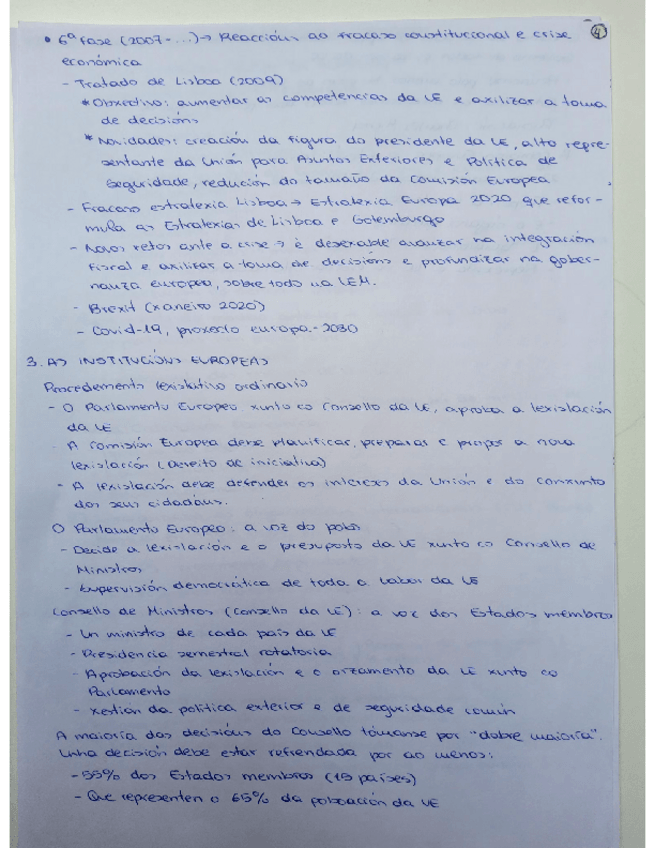 4
• 6ª fase (2007-...) → Reaccións ao fracaso constitucional e crise
económica
- Tratado de Lisboa (2009)
* Obxectivo: aumentar as competencias da UE e axilizar a toma
de decisións
* Novidades: creación da figura do presidente da UE, alto repre-
sentante da Unión para Asuntos Exteriores e Política de
Seguridade, redución do tamaño da Comisión Europea
- Fracaso estratexia Lisboa → Estratexia Europa 2020 que refor-
mula as Estratexias de Lisboa e Gotemburgo
- Novos retos ante a crise → é desexable avanzar na integración
fiscal e axilizar a toma de decisións e profundizar na gober-
nanza europea, sobre todo na UEM.
- Brexit (xaneiro 2020)
- Covid-19, proxecto europa-2030
3. AS INSTITUCIÓNS EUROPEAS
Procedemento lexislativo ordinario
- O Parlamento Europeo xunto co Consello da UE, aproba a lexislación
da UE
- A Comisión Europea debe planificar, preparar e propor a nova
lexislación (dereito de iniciativa)
- A lexislación debe defender os intereses da Unión e do conxunto
dos seus cidadáns.
O Parlamento Europeo: a voz do pobo
- Decide a lexislación e o presuposto da UE xunto co Consello de
Ministros
- Supervisión democrática de toda a labor da UE
Consello de Ministros (Consello da UE): a voz dos Estados membros
- Un ministro de cada país da UE
- Presidencia semestral rotatoria
- Aprobación da lexislación e o orzamento da UE xunto co
Parlamento
- Xestión da política exterior e de seguridade común
A maioría das decisións do Consello tómanse por "dobre maioría".
Unha decisión debe estar refrendada por ao menos:
- 55% dos Estados membros (15 países)
- Que representen o 65% da poboación da UE